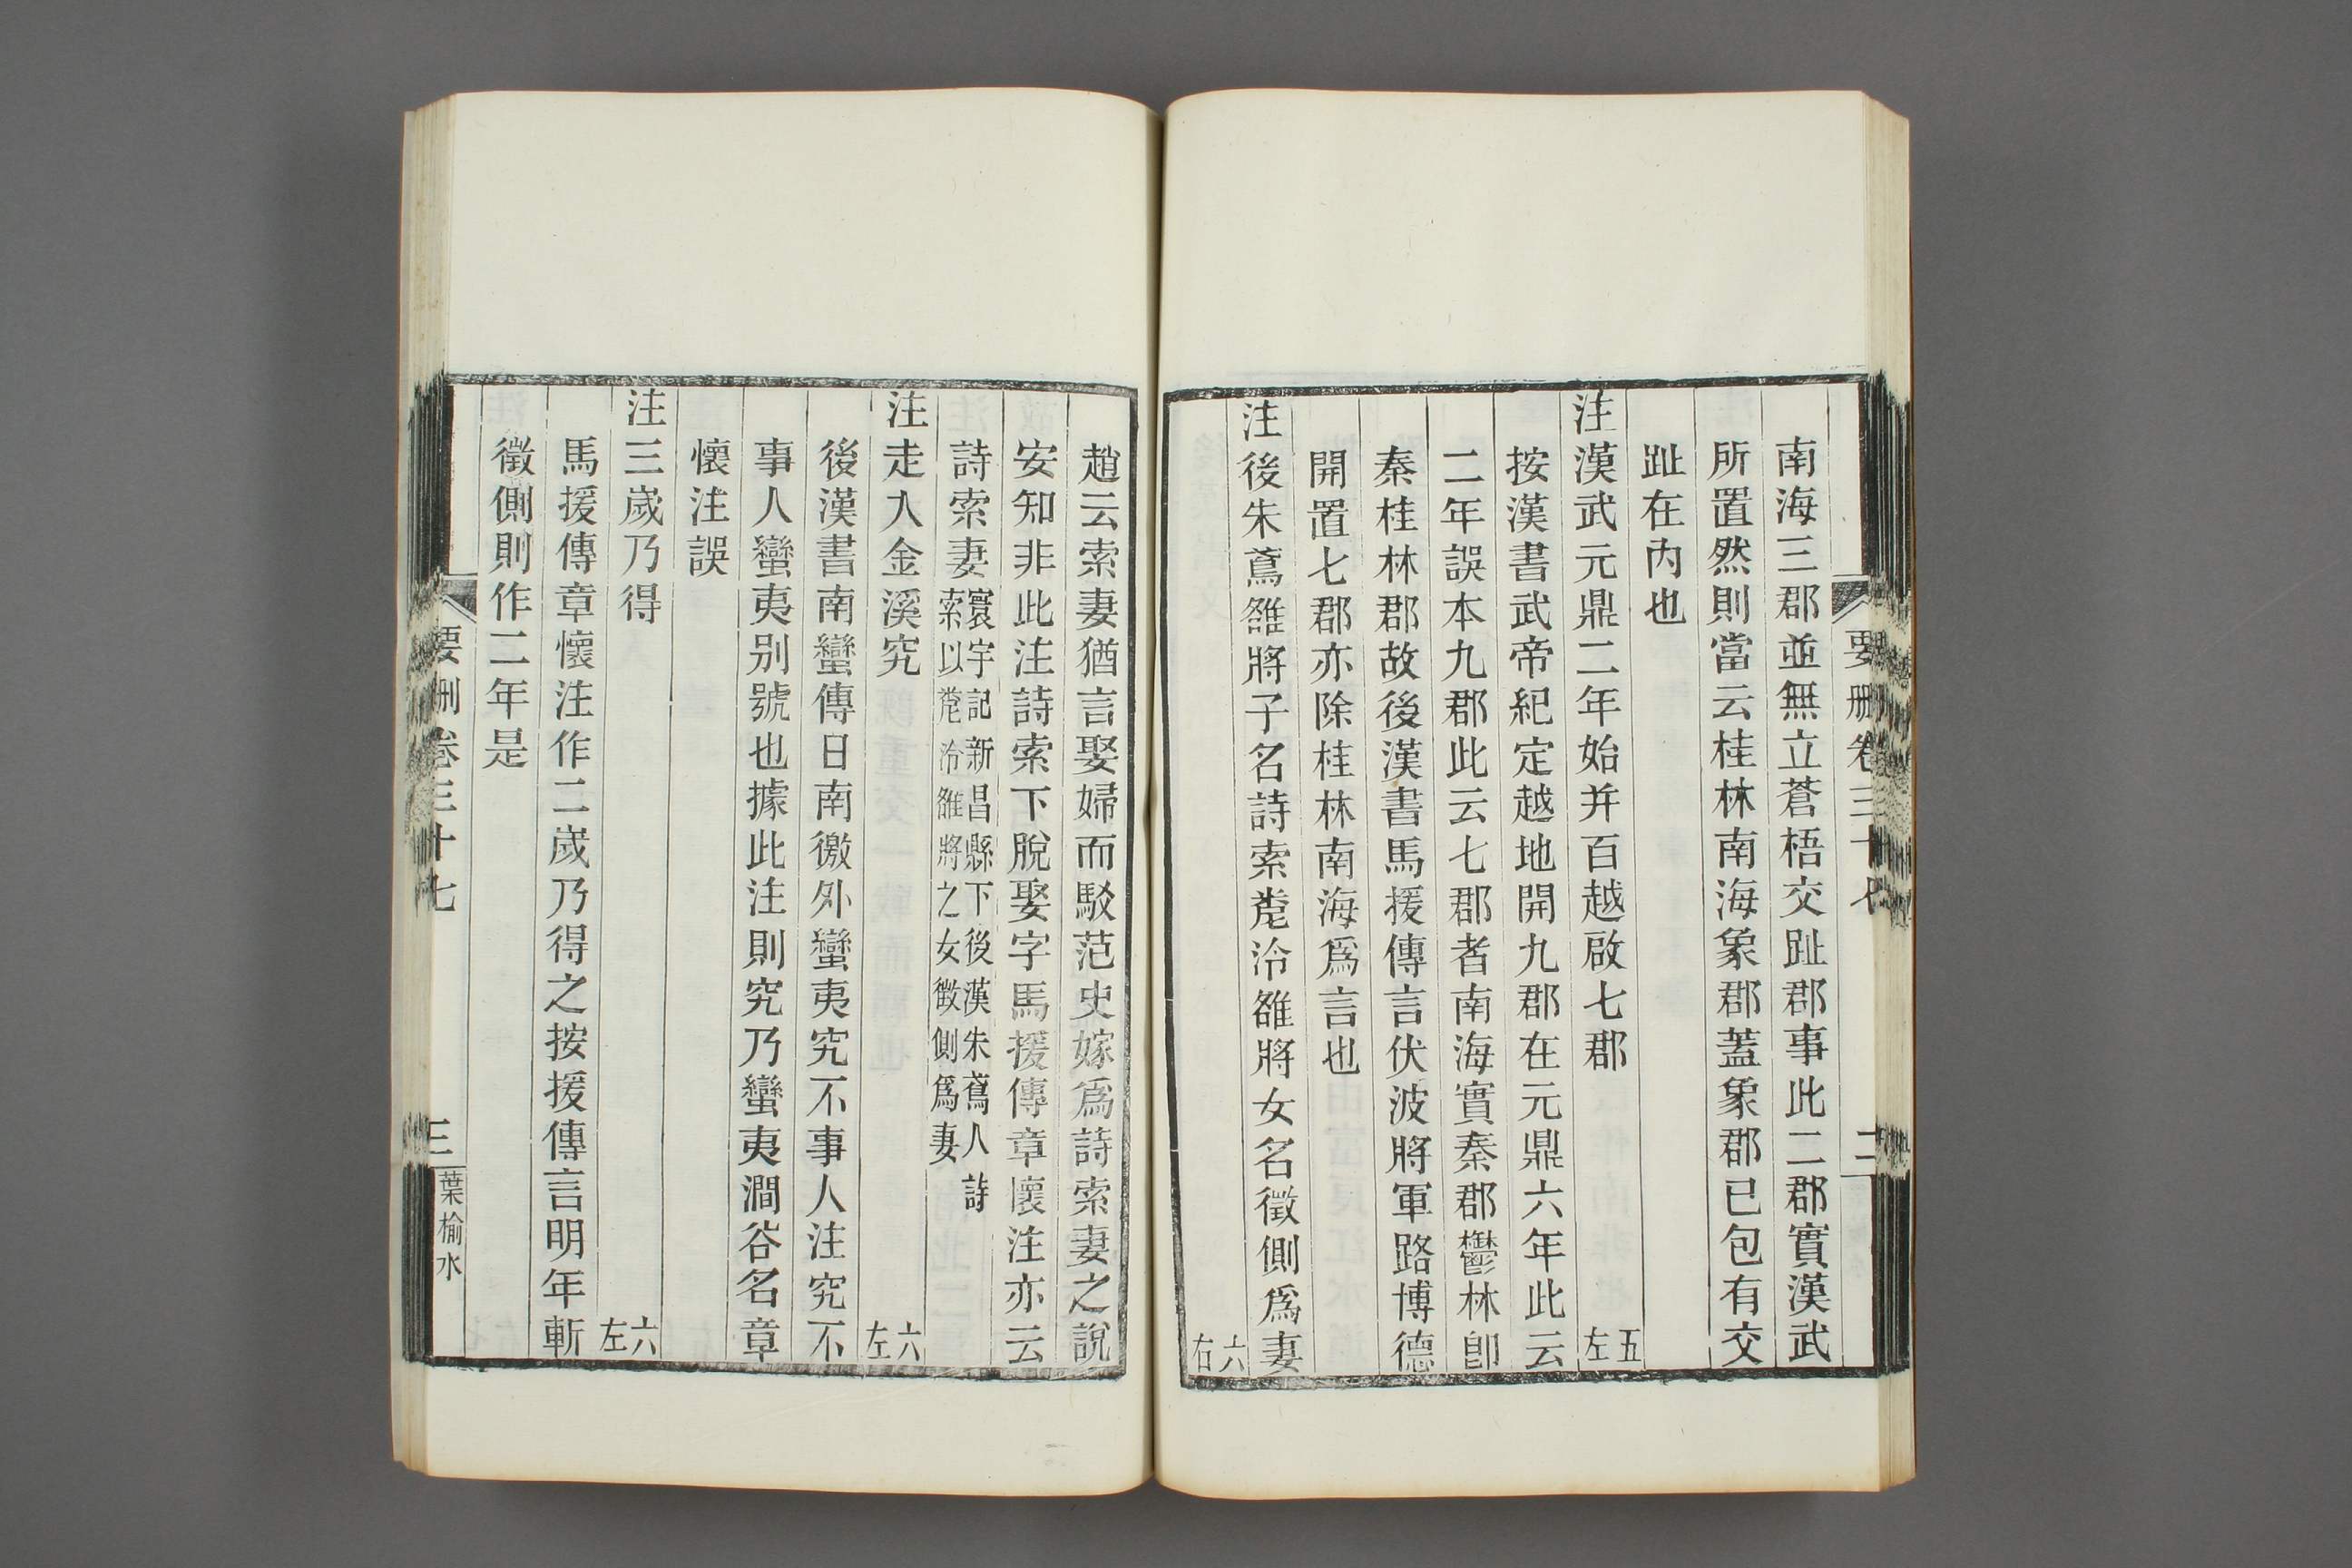 要刪卷三十七　二
南海三郡並無立蒼梧交趾郡事此二郡實漢武
所置然則當云桂林南海象郡蓋象郡已包有交
趾在內也
注漢武元鼎二年始幷百越啟七郡　五左
按漢書武帝紀定越地開九郡在元鼎六年此云
二年誤本九郡此云七郡者南海實秦郡鬱林卽
秦桂林郡故後漢書馬援傳言伏波將軍路博德
開置七郡亦除桂林南海爲言也
注後朱鳶雒將子名詩索㲋泠雒將女名徵側爲妻　六右
趙云索妻猶言娶婦而駁范史嫁爲詩索妻之說
安知非此注詩索下脫娶字馬援傳章懷注亦云
詩索妻寰宇記新昌縣下後漢朱鳶人詩
索以㲋泠雒將之女徵側爲妻
注走入金溪究　六左
後漢書南蠻傳日南徼外蠻夷究不事人注究不
事人蠻夷别號也據此注則究乃蠻夷澗谷名章
懷注誤
注三歲乃得　六左
馬援傳章懷注作二歲乃得之按援傳言明年斬
徵側則作二年是
要刪卷三十七　三　葉榆水